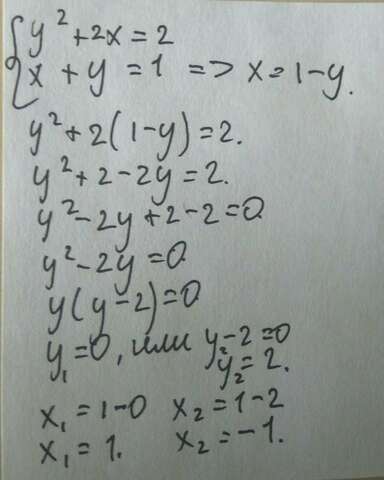 { y² + 2x = 2
x + y = 1 => x = 1 - y.
y² + 2(1 - y) = 2.
y² + 2 - 2y = 2.
y² - 2y + 2 - 2 = 0
y² - 2y = 0
y(y - 2) = 0
y₁ = 0, или y - 2 = 0
y₂ = 2.
x₁ = 1 - 0 x₂ = 1 - 2
x₁ = 1. x₂ = -1.